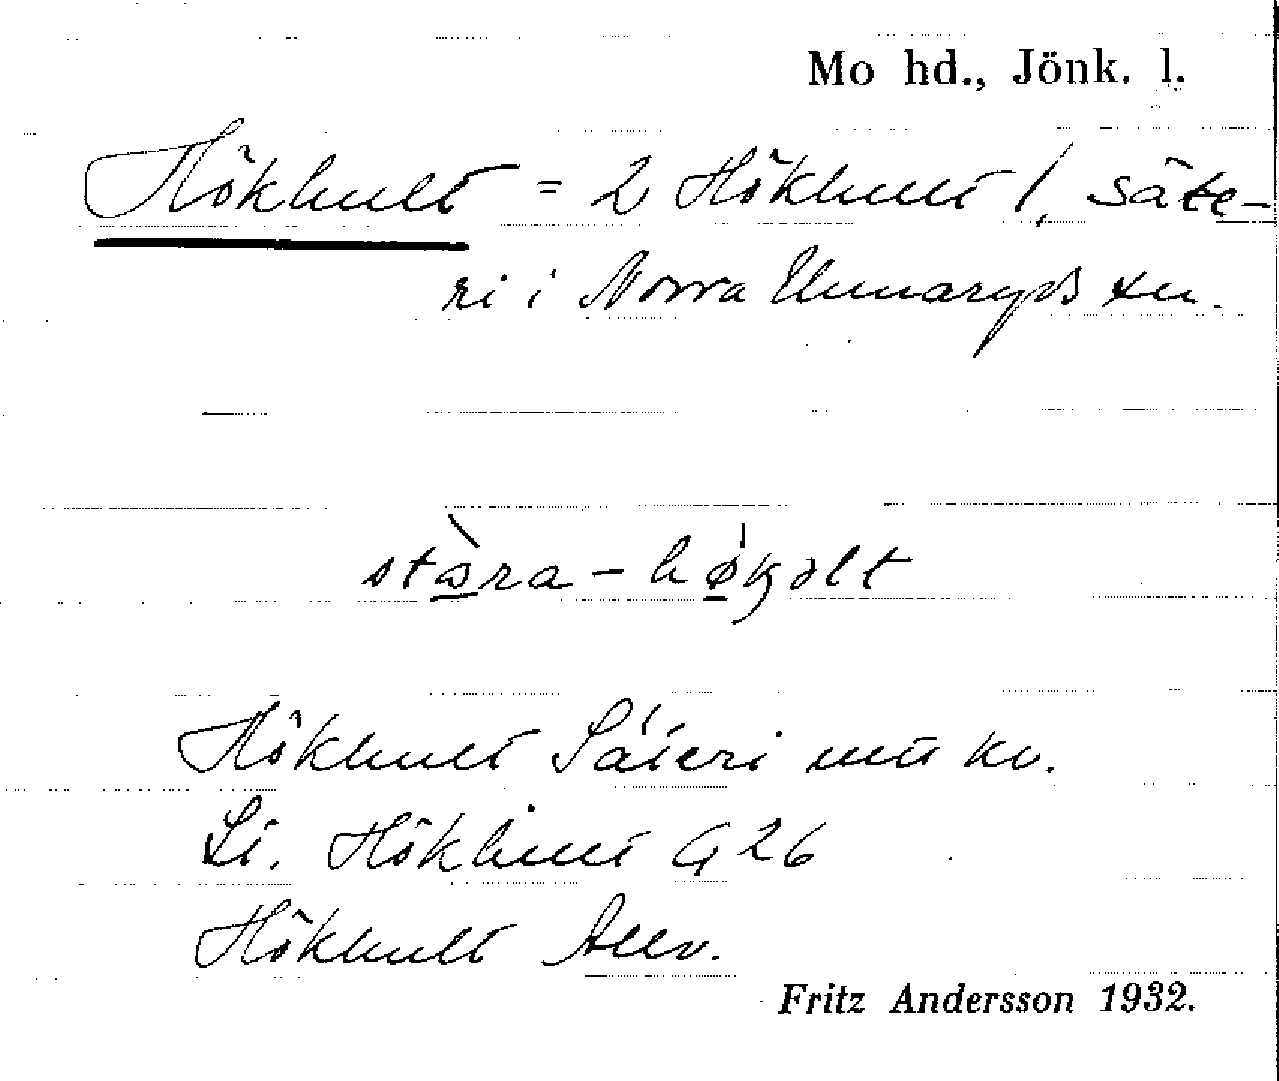 Mo hd., Jönk. l.
Hökhult = 2 Hökhult /, säte-
ri i Norra Unnaryds sn.
stɔ̀ra - høkolt
Hökhult Säteri
Hökhult G 26
Hökhult
Fritz Andersson 1932.